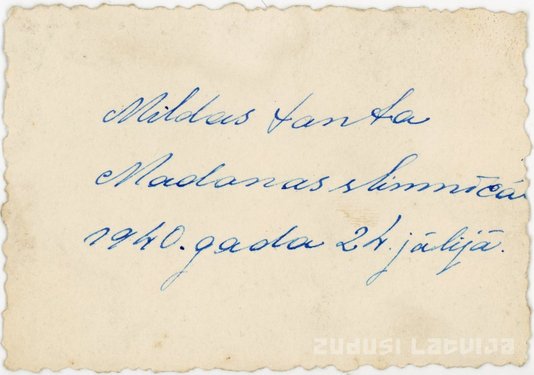 Mildas tanta
Madonas slimnīcā
1940. gada 24 jūlijā.
zudusi Latvija